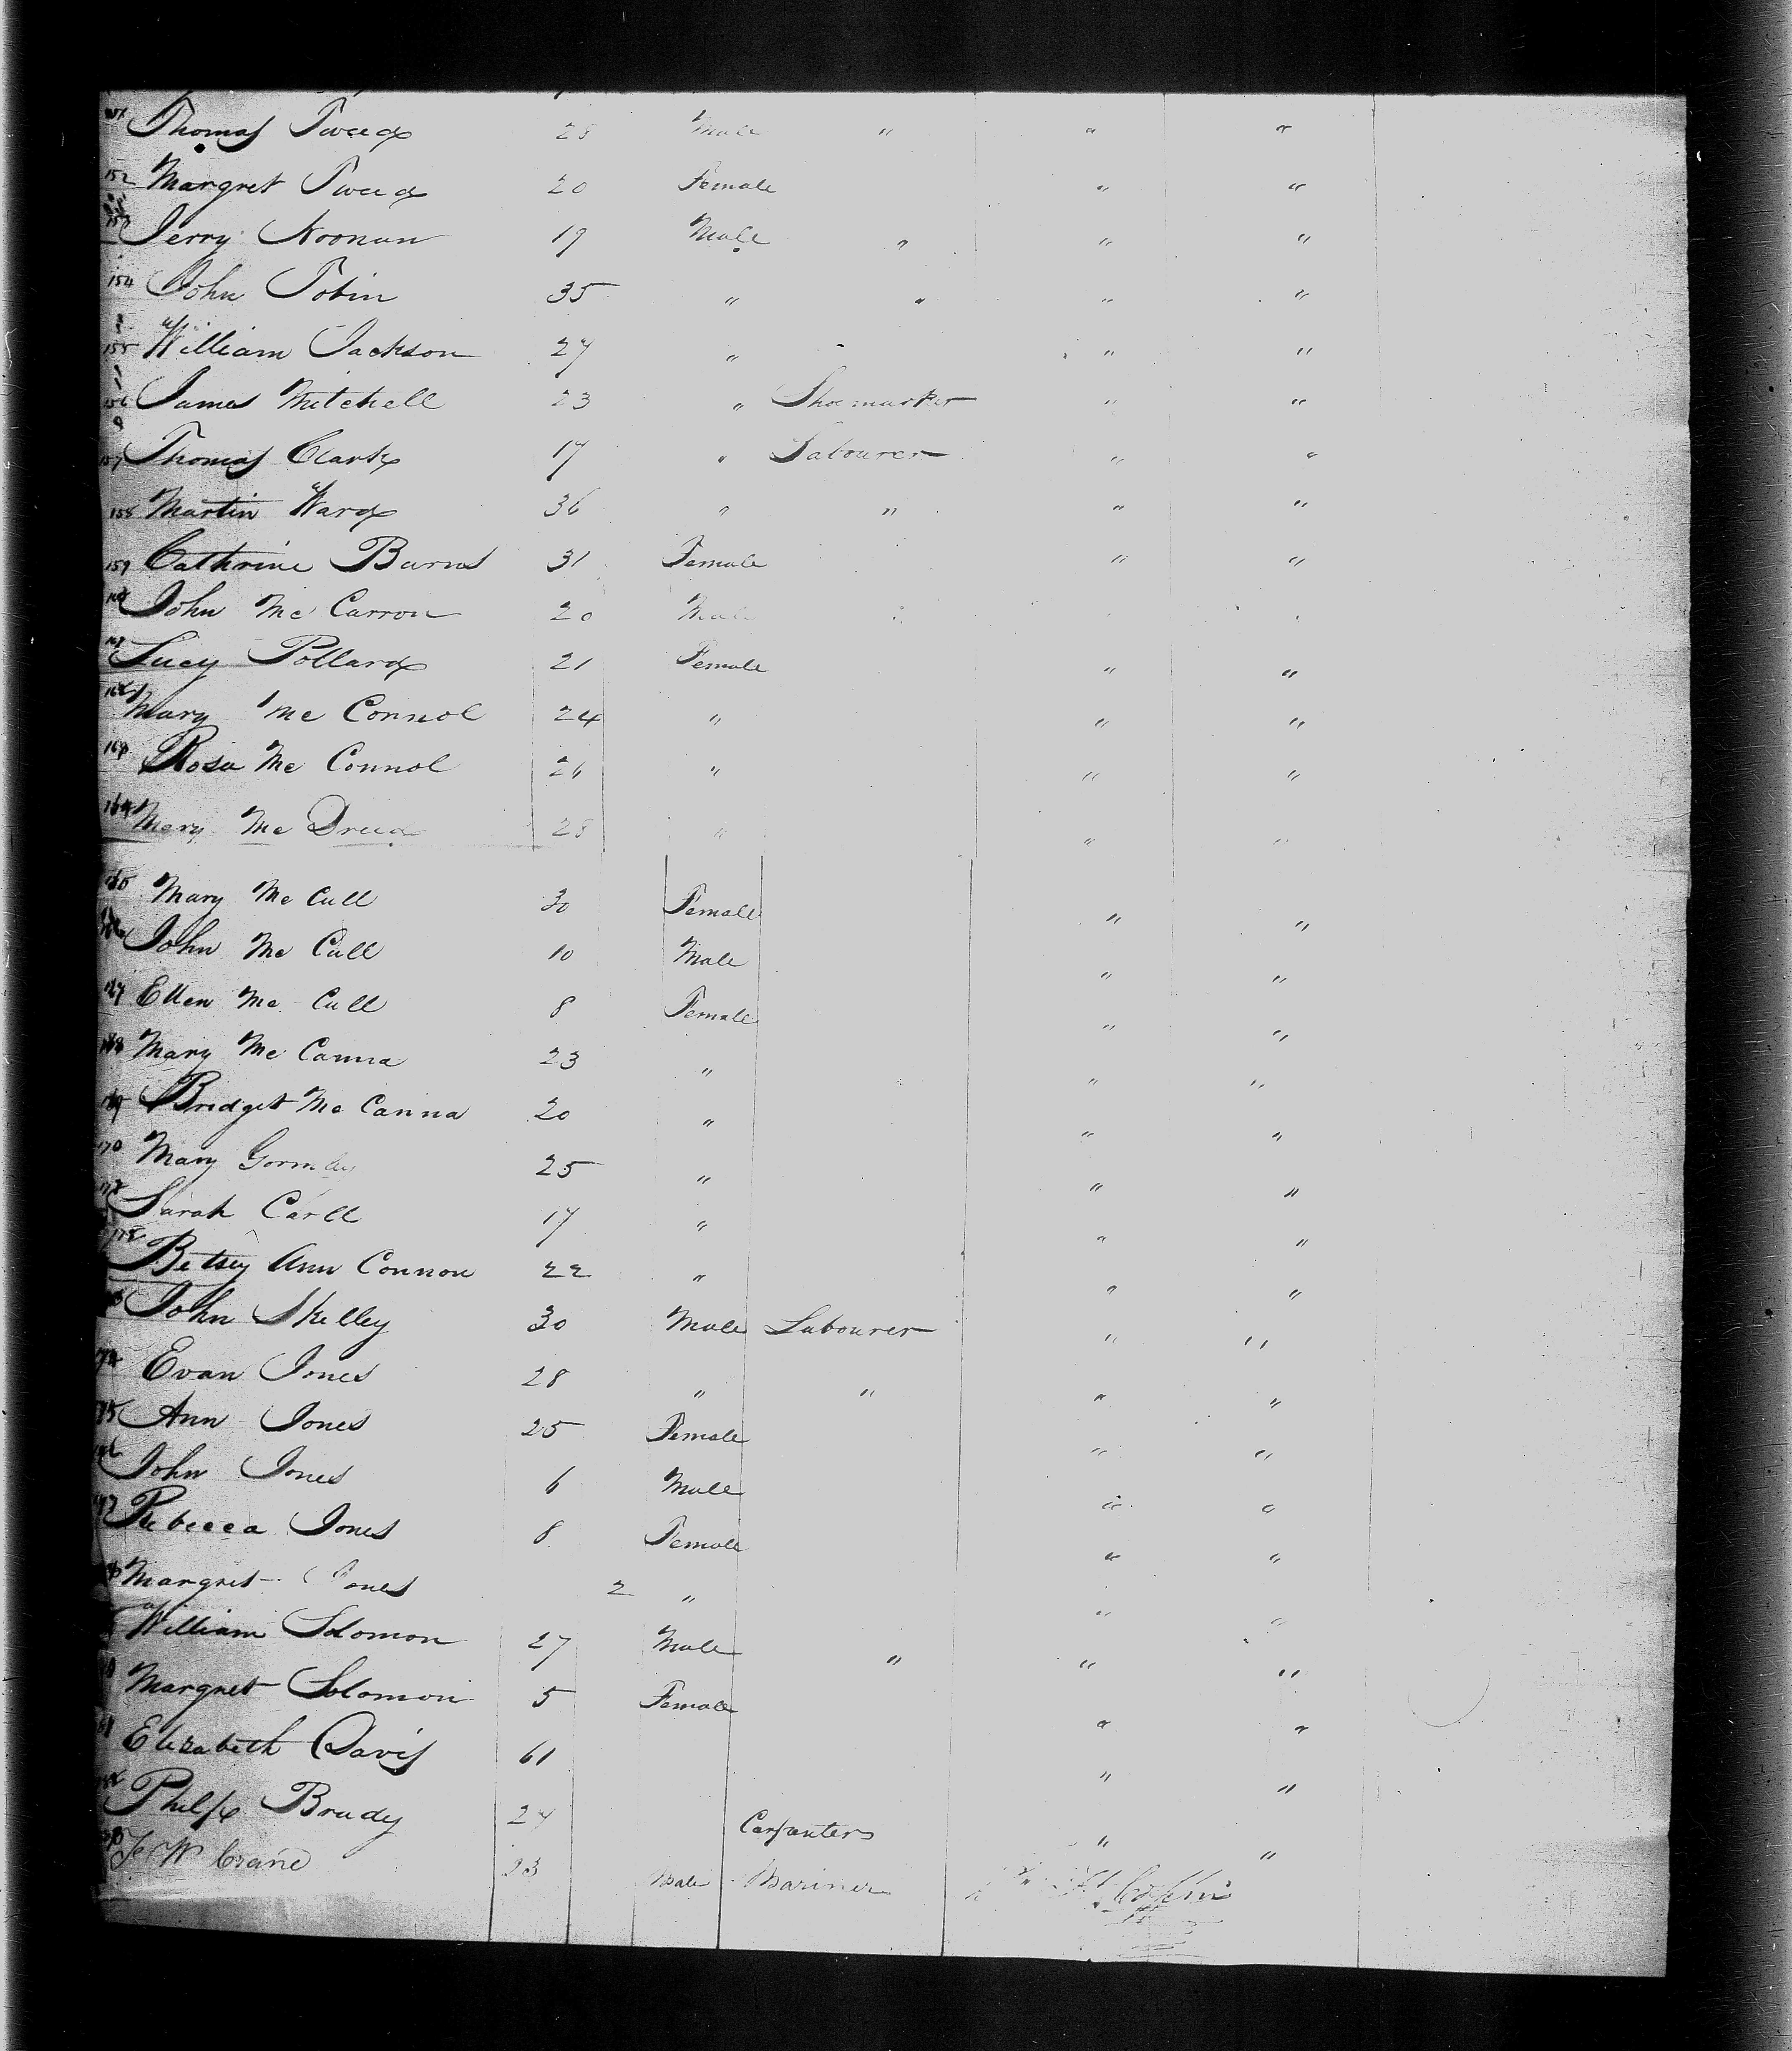 151 Thomas Tweed 28 Male " " "
152 Margret Tweed 20 Female " "
153 Jerry Noonan 19 Male " " "
154 John Tobin 35 " " " "
155 William Jackson 27 " - " "
156 James Mitchell 23 " Shoemarker " "
157 Thomas Clark 17 " Labourer " "
158 Martin Ward 36 " " " "
159 Cathrine Burns 31 Female " "
160 John Mc Carron 20 Male " " "
161 Lucy Pollard 21 Female " "
162 Mary Mc Connol 24 " " "
163 Rosa Mc Connol 26 " " "
164 Mary Mc 28 " " "
165 Mary Mc Cull 30 Female " "
166 John Mc Cull 10 Male " "
167 Ellen Mc Cull 8 Female " "
168 Mary Mc Canna 23 " " "
169 Bridget Mc Canna 20 " " "
170 Mary Gormley 25 " " "
171 Sarah Carll 17 " " "
172 Betsey Ann Connon 22 " " "
173 John Skelley 30 Male Labourer " "
174 Evan Jones 28 " " " "
175 Ann Jones 25 Female " "
176 John Jones 6 Male " "
177 Rebecca Jones 8 Female " "
178 Margret Jones 2 " " "
William Solomon 27 Male " " "
Margret Solomon 5 Female " "
Elizabeth Davis 61 " "
182 Philip Brady 24 Carpenters " "
183 W Crane 23 Male Mariner